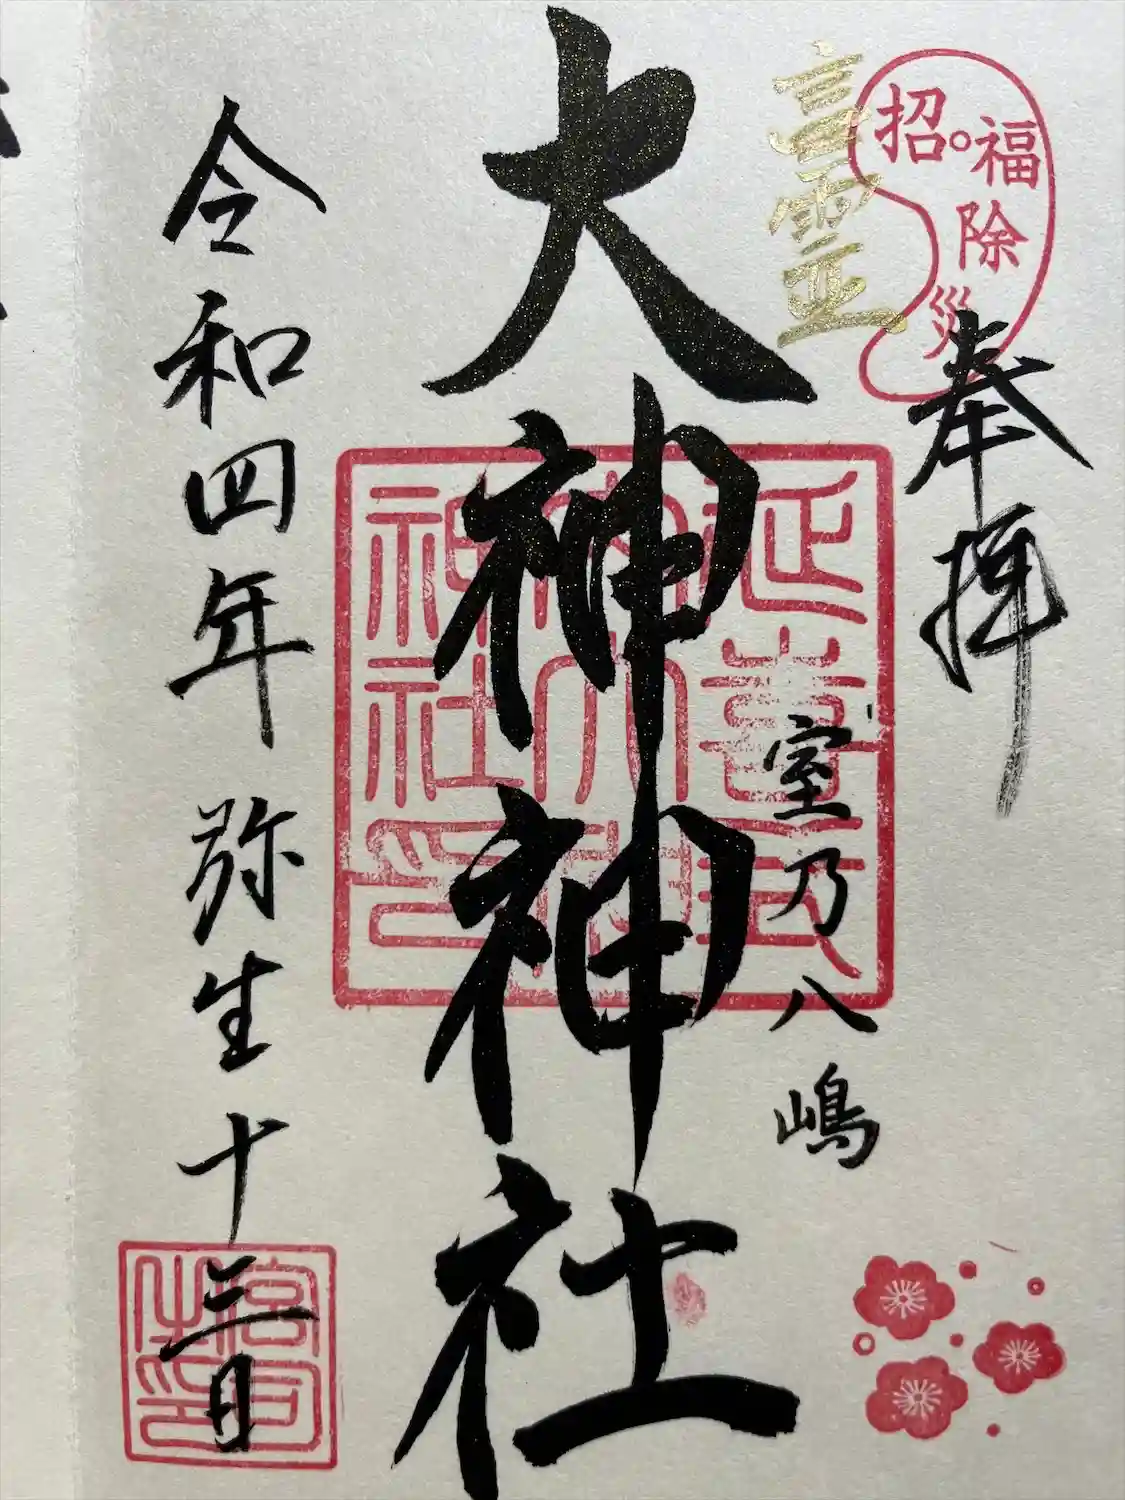 奉拝
招福除災
言霊
室乃八嶋
大神神社
延喜式内大神神社印
令和四年 弥生十三日
宮司之印